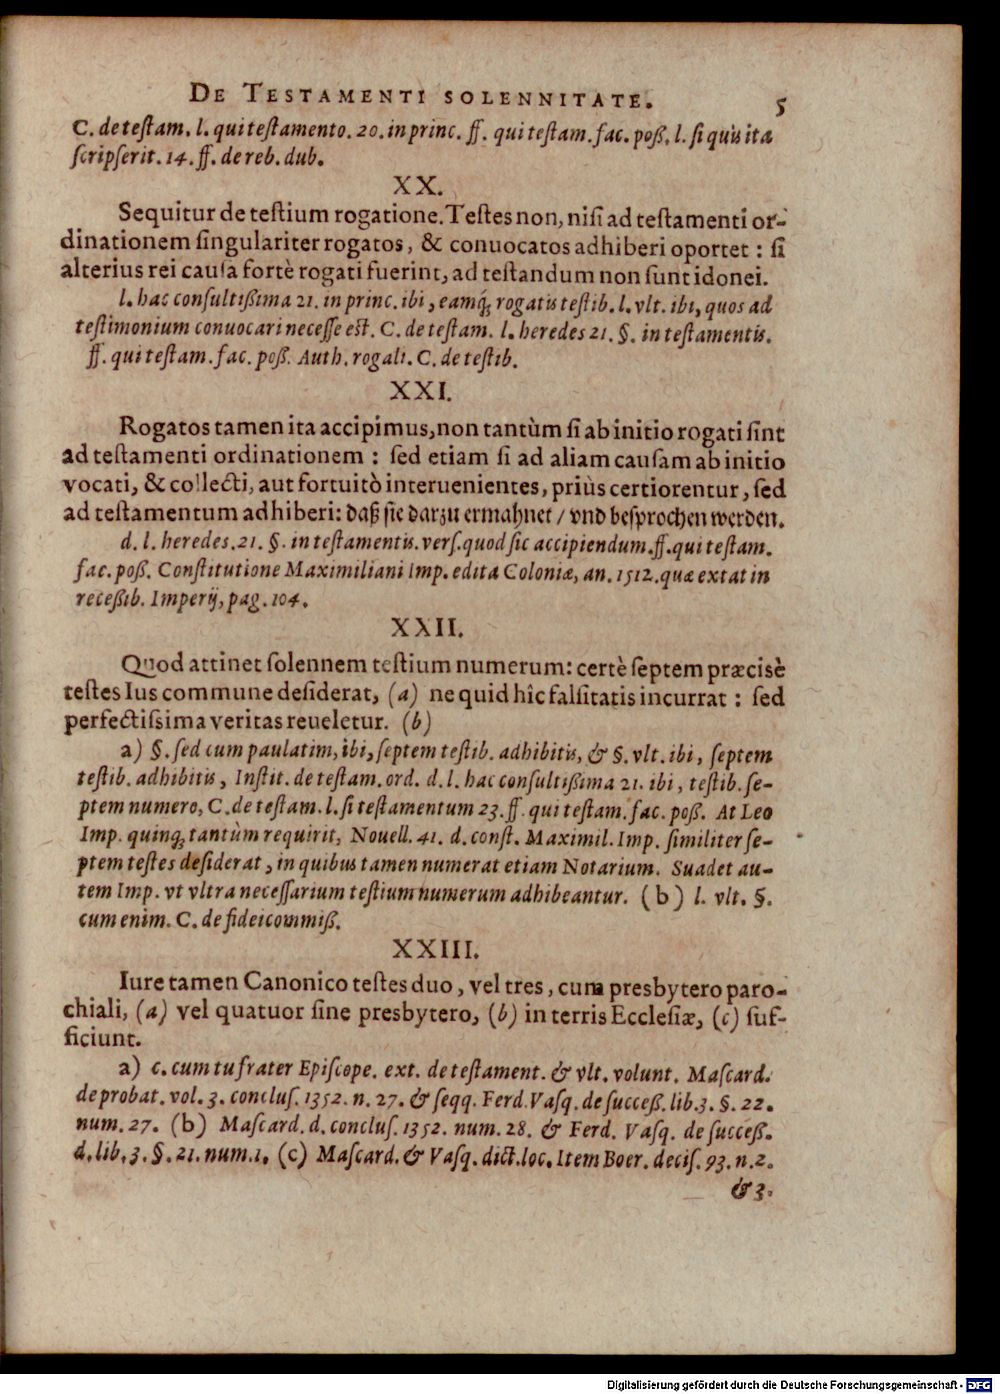 DE TESTAMENTI SOLENNITATE. 5
C. de teſtam. l. qui teſtamento. 20. in princ. ff. qui teſtam. fac. poß. l. ſi quis ita
ſcripſerit. 14. ff. de reb. dub.
XX.
Sequitur de teſtium rogatione. Teſtes non, niſi ad teſtamenti or-
dinationem ſingulariter rogatos, & conuocatos adhiberi oportet: ſi
alterius rei cauſa fortè rogati fuerint, ad teſtandum non ſunt idonei.
l. hac conſultißima 21. in princ. ibi, eamq́; rogatis teſtib. l. vlt. ibi, quos ad
teſtimonium conuocari neceſſe eſt. C. de teſtam. l. heredes 21. §. in teſtamentis.
ff. qui teſtam. fac. poß. Auth. rogati. C. de teſtib.
XXI.
Rogatos tamen ita accipimus, non tantùm ſi ab initio rogati ſint
ad teſtamenti ordinationem: ſed etiam ſi ad aliam cauſam ab initio
vocati, & collecti, aut fortuitò interuenientes, priùs certiorentur, ſed
ad teſtamentum adhiberi: daß ſie darzu ermahnet / vnd beſprochen werden.
d. l. heredes. 21. §. in teſtamentis. verſ. quod ſic accipiendum. ff. qui teſtam.
fac. poß. Conſtitutione Maximiliani Imp. edita Coloniæ, an. 1512. quæ extat in
receßib. Imperij, pag. 104.
XXII.
Quod attinet ſolennem teſtium numerum: certè ſeptem præcisè
teſtes Ius commune deſiderat, (a) ne quid hîc falſitatis incurrat: ſed
perfectiſsima veritas reueletur. (b)
a) §. ſed cum paulatim, ibi, ſeptem teſtib. adhibitis, & §. vlt. ibi, ſeptem
teſtib. adhibitis, Inſtit. de teſtam. ord. d. l. hac conſultißima 21. ibi, teſtib. ſe-
ptem numero, C. de teſtam. l. ſi teſtamentum 23. ff. qui teſtam. fac. poß. At Leo
Imp. quinq; tantùm requirit, Nouell. 41. d. conſt. Maximil. Imp. ſimiliter ſe-
ptem teſtes deſiderat, in quibus tamen numerat etiam Notarium. Suadet au-
tem Imp. vt vltra neceſſarium teſtium numerum adhibeantur. (b) l. vlt. §.
cum enim. C. de fideicommiß.
XXIII.
Iure tamen Canonico teſtes duo, vel tres, cum presbytero paro-
chiali, (a) vel quatuor ſine presbytero, (b) in terris Eccleſiæ, (c) ſuf-
ficiunt.
a) c. cum tu frater Epiſcope. ext. de teſtament. & vlt. volunt. Maſcard.
de probat. vol. 3. concluſ. 1352. n. 27. & ſeqq. Ferd. Vaſq. de ſucceß. lib. 3. §. 22.
num. 27. (b) Maſcard. d. concluſ. 1352. num. 28. & Ferd. Vaſq. de ſucceß.
d. lib. 3. §. 21. num. 1. (c) Maſcard. & Vaſq. dict. loc. Item Boer. deciſ. 93. n. 2.
& 3.
Digitalisierung gefördert durch die Deutsche Forschungsgemeinschaft - DFG